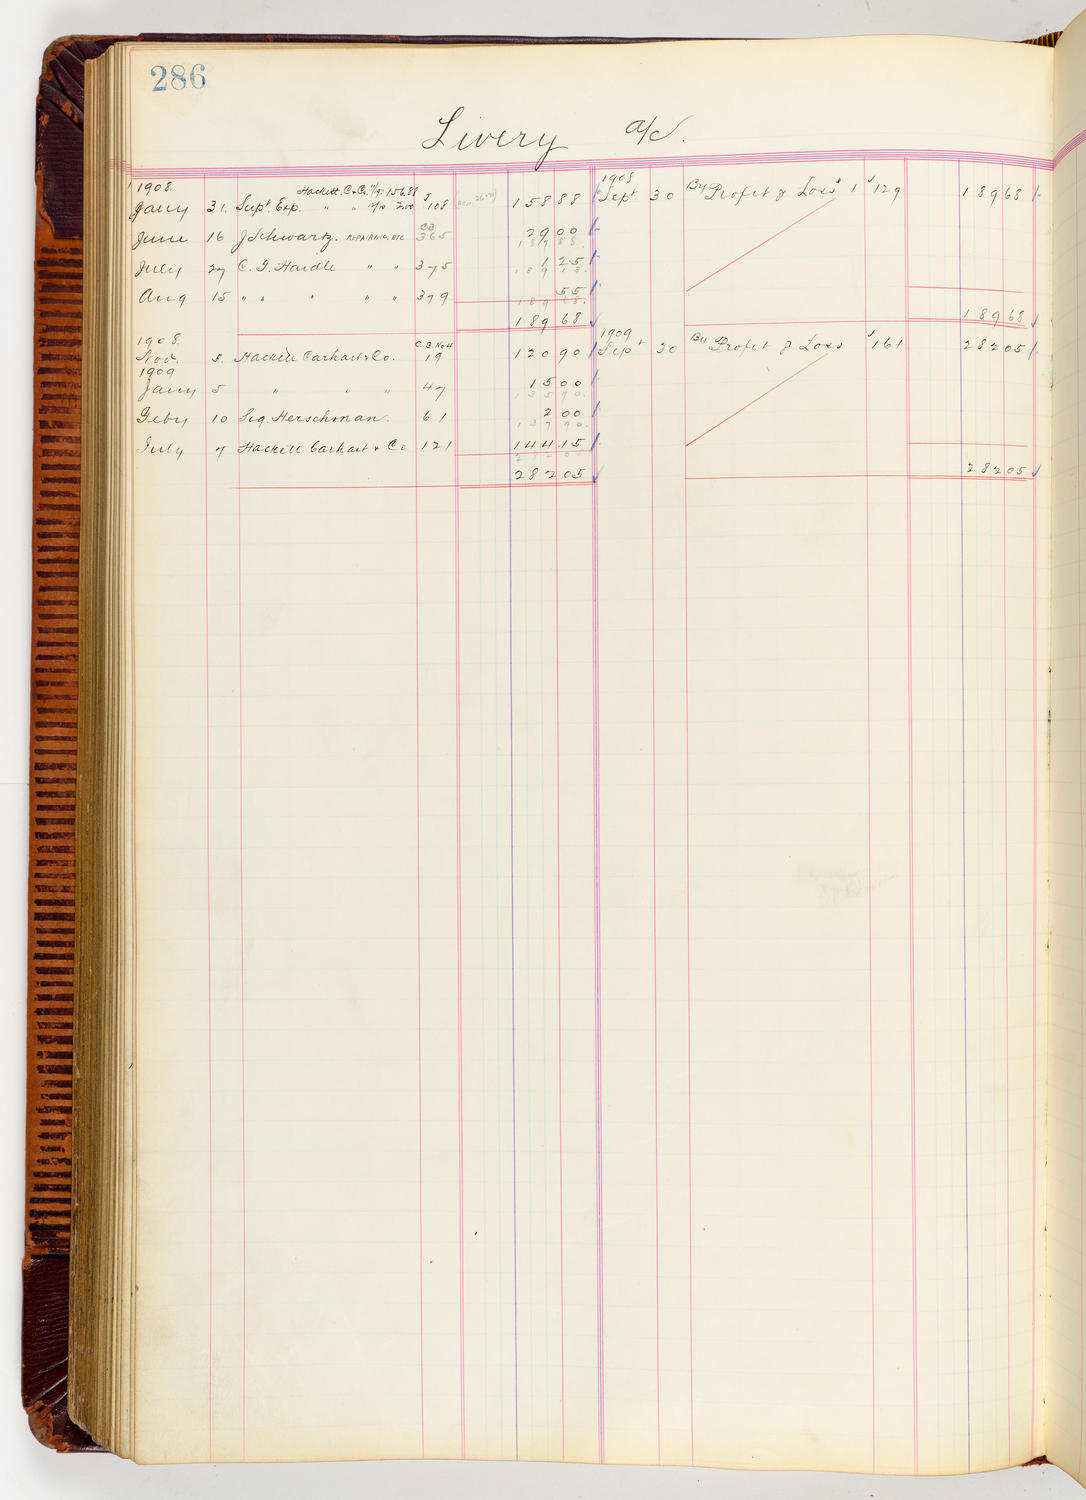 286
Livery a/c.
1908 Hackett. C & Co. 11/9: 156.88
Jany 31. Supt Exp. " " 12/10 2.00 J 108 158 88
June 16 J Schwartz. REPAIRING. ETC C.B. 365 29 00
187 88.
July 27 C. F. Haidle " " 375 1 25
189 13.
Aug 15 " " " " " 379 55
189 68.
189 68
1908.
Nov. 5. Hackett Carhart & Co. C.B. No 4 19 120 90
1909
Jany 5 " " " 47 15 00
135 90.
Feby 10 Sig. Herschman. 61 2 00
137 90.
July 7 Hackett Carhart & Co 121 144 15
282 05
282 05
1908
Sept 30 By Profit & Loss 1 J 129 189 68
189 68
1909
Sept 30 By Profit & Loss J 161 282 05
282 05